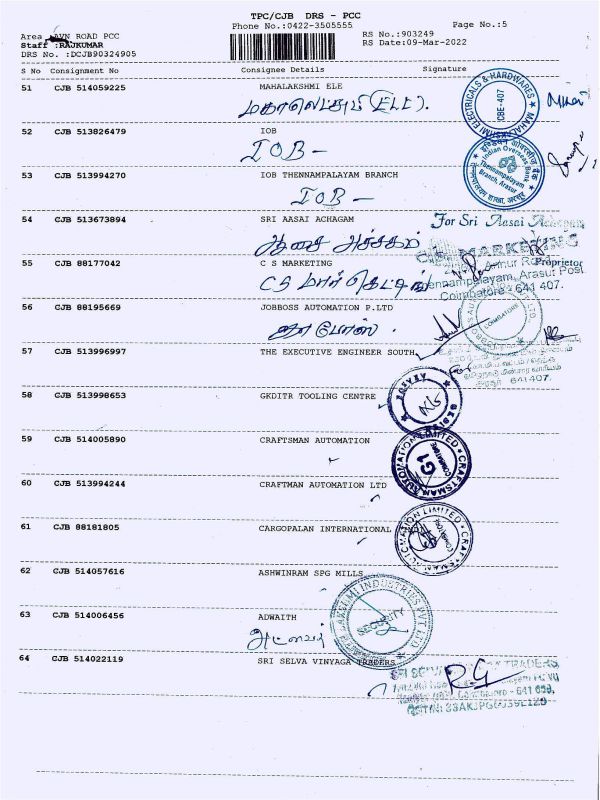 TPC/CJB DRS - PCC
Phone No.:0422-3505555
Page No.:5
Area :AVN ROAD PCC
RS No.:903249
Staff :RAJKUMAR
RS Date:09-Mar-2022
DRS No. :DCJB90324905
S No Consignment No Consignee Details Signature
51 CJB 514059225 MAHALAKSHMI ELE
MAHALAKSHMI ELECTRICALS & HARDWARES
CBE-407
52 CJB 513826479 IOB
IOB -
Indian Overseas Bank
Thennampalayam
Branch, Arasur
53 CJB 513994270 IOB THENNAMPALAYAM BRANCH
IOB -
54 CJB 513673894 SRI AASAI ACHAGAM
For Sri Aasai Achagam
ஆசை அச்சகம்
C.S. MARKETING
Proprietor
55 CJB 88177042 C S MARKETING
Thennampalayam, Arasur Post
CS மார்கெட்டிங்
Coimbatore - 641 407.
56 CJB 88195669 JOBBOSS AUTOMATION P.LTD
COIMBATORE
ஜாபோஸ்
57 CJB 513996997 THE EXECUTIVE ENGINEER SOUTH
641407.
58 CJB 513998653 GKDITR TOOLING CENTRE
59 CJB 514005890 CRAFTSMAN AUTOMATION
CRAFTSMAN AUTOMATION LIMITED
G1
COIMBATORE
60 CJB 513994244 CRAFTMAN AUTOMATION LTD
61 CJB 88181805 CARGOPALAN INTERNATIONAL
CRAFTSMAN AUTOMATION LIMITED
62 CJB 514057616 ASHWINRAM SPG MILLS
LAKSHMI INDUSTRIES PVT LTD
SECURITY
63 CJB 514006456 ADWAITH
64 CJB 514022119 SRI SELVA VINYAGA TRADERS
R.G